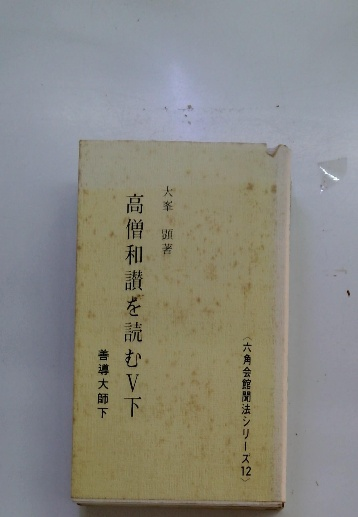 大峯 顕著
高僧和讃を読むV下
善導大師下
（六角会館聞法シリーズ12）